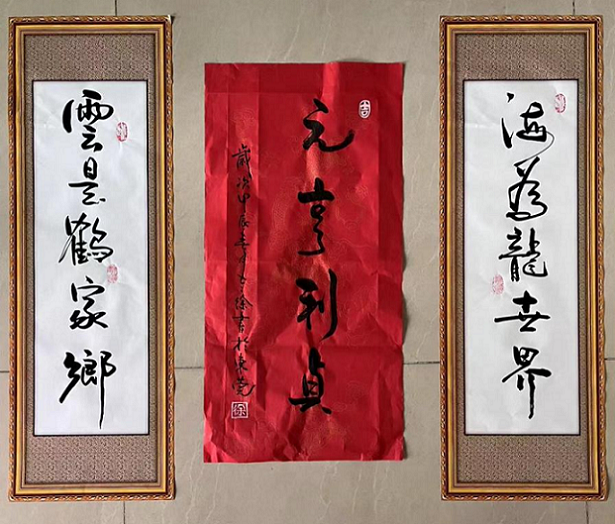 海為龍世界
元亨利貞
歲次甲辰 徐 於東莞
雲是鶴家鄉